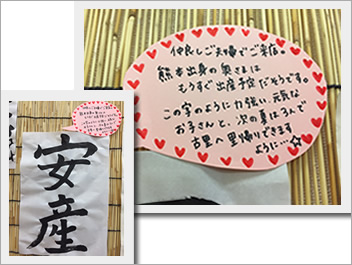 仲良しご夫婦でご来店。
熊本出身の奥さまは
もうすぐ出産予定だそうです。
この字のように力強い、元気な
お子さんと、次の夏はるんで
古里へ里帰りできます
ように…☆
安産